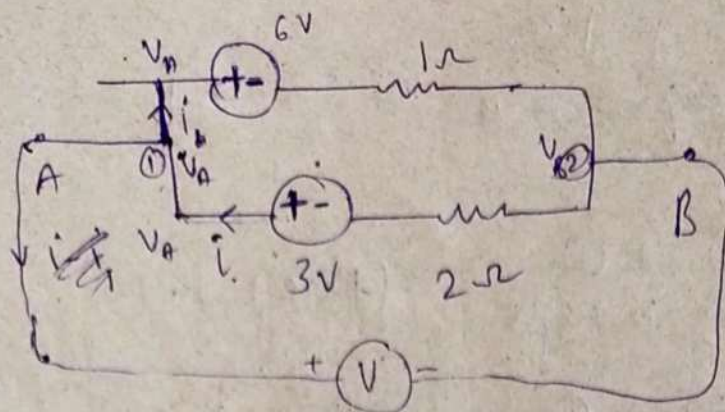 V_A + - 6V 1Ω
i_b
A ① V_A V_B ② B
V_A i + - 3V 2Ω
i
+ V -